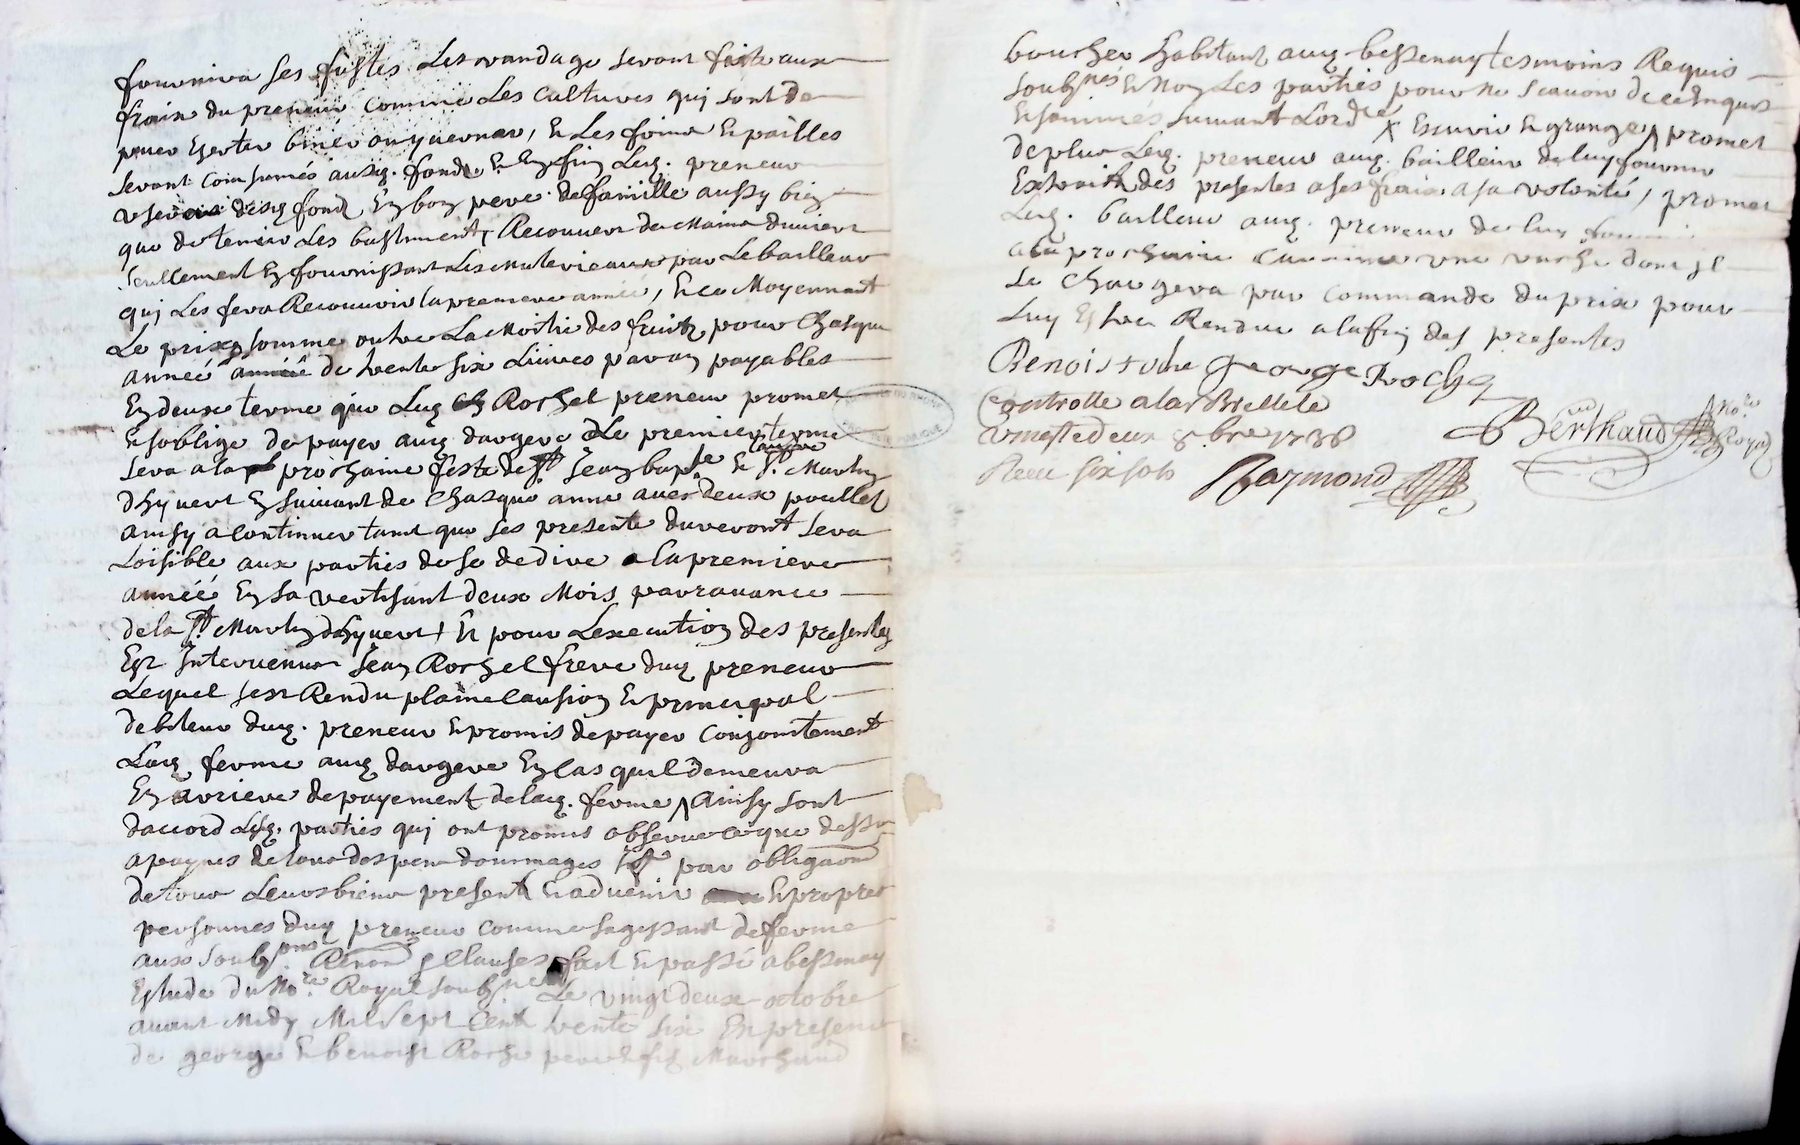 fournira ses fustes Les vandage seront faite aux
fraix du preneur comme Les cultures quj sont de
piner biner ou yuernar, & Les foins & pailles
seront consumés ausq. fondz & Enfin Leq. preneur
desq fond En bon pere de famille aussy bien
que de tenir Les bastiment Recouuert de Mains duuier
seullement En fournissant Les Materieaux par Le bailleur
quj Les fera Recouurir la premiere année, & ce Moyennant
Le prix & somme outre La Moitié des fruitz pour chasque
année année de trente six Liures paran payables
En deux terme que Leq Rochet preneur promet
& soblige de payer auq dargere Le premier terme
sera a la prochaine feste de St Jean bapte & lautre St. Martin
dhyuert En suiuant de chasque anne auec deux poullet
ainsy a continuer tant que ses presente dureront sera
Loisible aux parties de se dedire a la premiere
année En sa vertisant deux Mois par auance
de la St Martin dhyuert & pour Lexecution des presentes
Est Interuenu Jean Rochet frere duq preneur
Lequel sest Rendu plaine caution & principal
debiteur duq. preneur & promis de payer conjointement
Laq ferme auq dargere En cas quil demeura
En arriere de payement de laq. ferme / Ainsy sont
daccord Lesq. parties quj ont promis obseruer ce que dessu
a paynes de tous despens dommages par obligaon
de tous Leurs biens present & aduenir & propres
personnes duq preneur comme sagissant de ferme
aux soubzons Renon & clauses fait & passé a bessenay
Estude du Nore Royal soubzne Le vingt deux octobre
auant Midy Mil sept Cent trente six En presence
de george & benoist Roche pere & fils Marchand
boucher habitant auq bessenay tesmoins Requis
soubznés & Non Les parties pour ne scauoir de ce Enquis
& sommés suiuant Lordce X Escurie & grange / promet
de plus Leq. preneur auq. bailleur de luy fournir
Extrait des presentes a ses fraix a sa volonté, promet
Leq. bailleur auq. preneur de luy
a la prochaine une vache dont jl
se chargera par commande du prix pour
Luy Estre Rendue a la fin des presentes
Benoist roche george Roche
Controlle a larBrellele
Berthaud Nore Royal
vingt deux 8bre 1736
Receu six sols Raymond